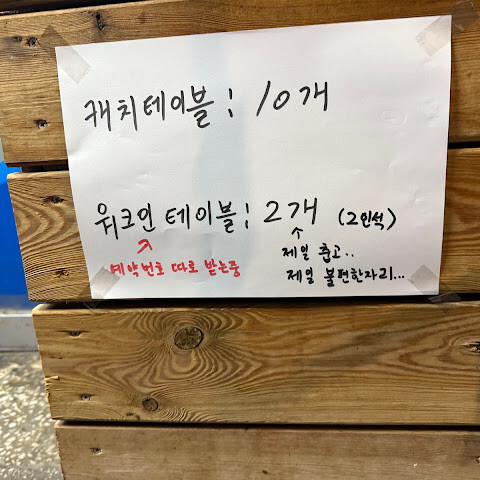 캐치테이블 : 10개
워크인 테이블 : 2개 (2인석)
예약번호 따로 받는중
제일 춥고..
제일 불편한자리...